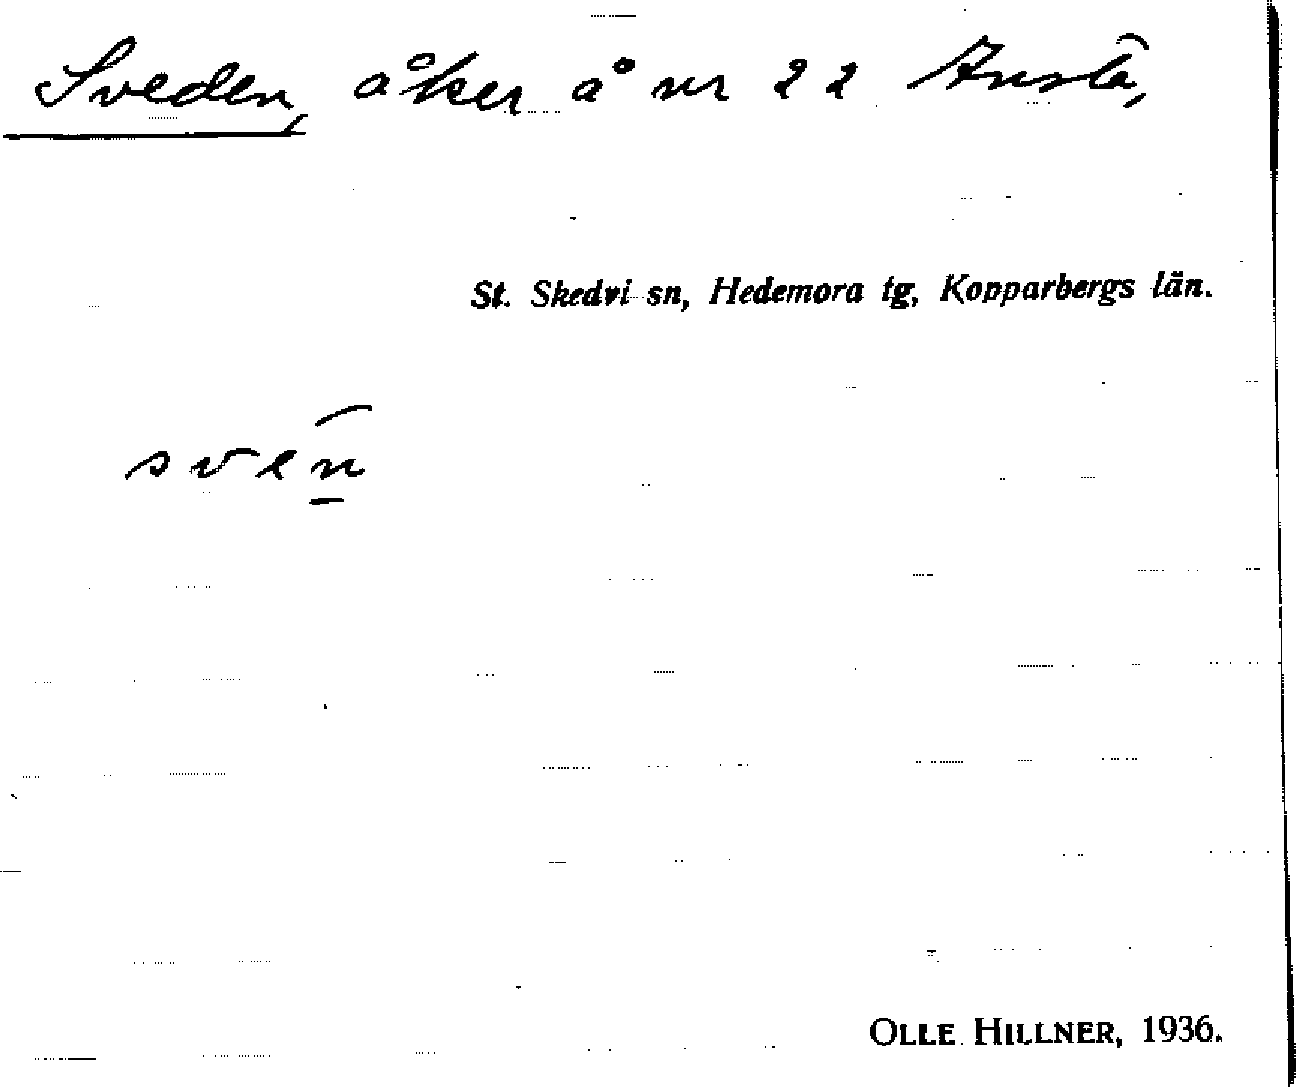 Sveden, åker å nr 22 Ansta,
St. Skedvi sn, Hedemora tg, Kopparbergs län.
sven
OLLE HILLNER, 1936.